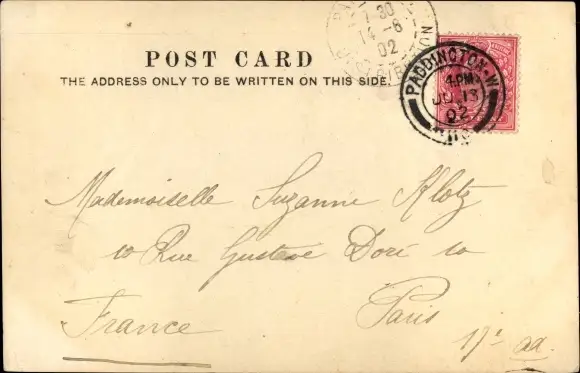 7-30
14-6
02
DISTRIBUTION
POST CARD
THE ADDRESS ONLY TO BE WRITTEN ON THIS SIDE.
PADDINGTON-W
4 PM
JU 13
02
Mademoiselle Suzanne Klotz
10 Rue Gustave Doré 10
Paris
France
17e ad.